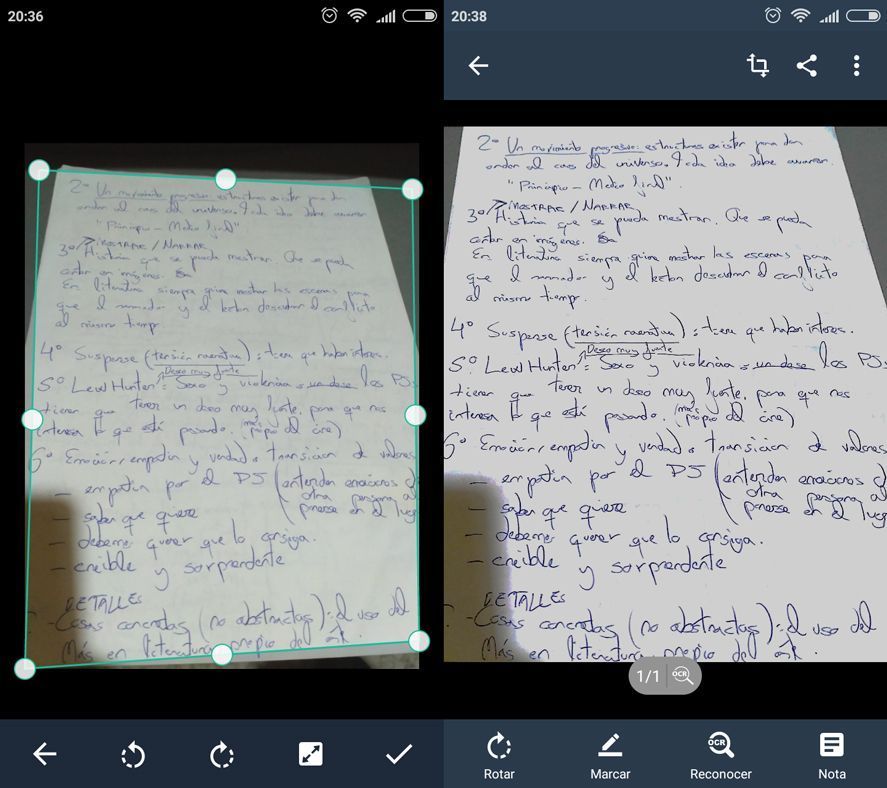 20:36
2º Un movimiento progresivo: estructuras existen para dar
orden al caos del universo. Toda idea debe avanzar.
"Principio – Medio
3º MOSTRAR / NARRAR
Historia que se pueda mostrar. Que se pueda
contar en imágenes.
En literatura siempre quiere mostrar las escenas para
que el narrador y el lector descubran el conflicto
al mismo tiempo.
4º Suspense (tensión narrativa): tiene que haber interés.
Deseo muy fuerte
5º Lew Hunter: Sexo y violencia los PJs
tienen que tener un deseo muy fuerte, para que nos
interesa lo que está pasando. (más propio del cine)
6º Emoción, empatía y verdad transición de valores
– empatía por el PJ (entender emociones
otra persona
ponerse en el
– saber que quiere
– debemos querer que lo consiga.
– creible y sorprendente
DETALLES
– Cosas concretas (no abstractas): el uso del
Más en literatura, propio del
20:38
2º Un movimiento progresivo: estructuras existen para dar
orden al caos del universo. Toda idea debe avanzar.
"Principio – Medio
3º MOSTRAR / NARRAR
Historia que se pueda mostrar. Que se pueda
contar en imágenes.
En literatura siempre quiere mostrar las escenas para
que el narrador y el lector descubran el conflicto
al mismo tiempo.
4º Suspense (tensión narrativa): tiene que haber interés.
Deseo muy fuerte
5º Lew Hunter: Sexo y violencia los PJs
tienen que tener un deseo muy fuerte, para que nos
interesa lo que está pasando. (más propio del cine)
6º Emoción, empatía y verdad transición de valores
– empatía por el PJ (entender emociones
otra persona
ponerse en el
– saber que quiere
– debemos querer que lo consiga.
– creible y sorprendente
DETALLES
– Cosas concretas (no abstractas): el uso del
Más en literatura, propio del
1/1 OCR
Rotar
Marcar
OCR
Reconocer
Nota